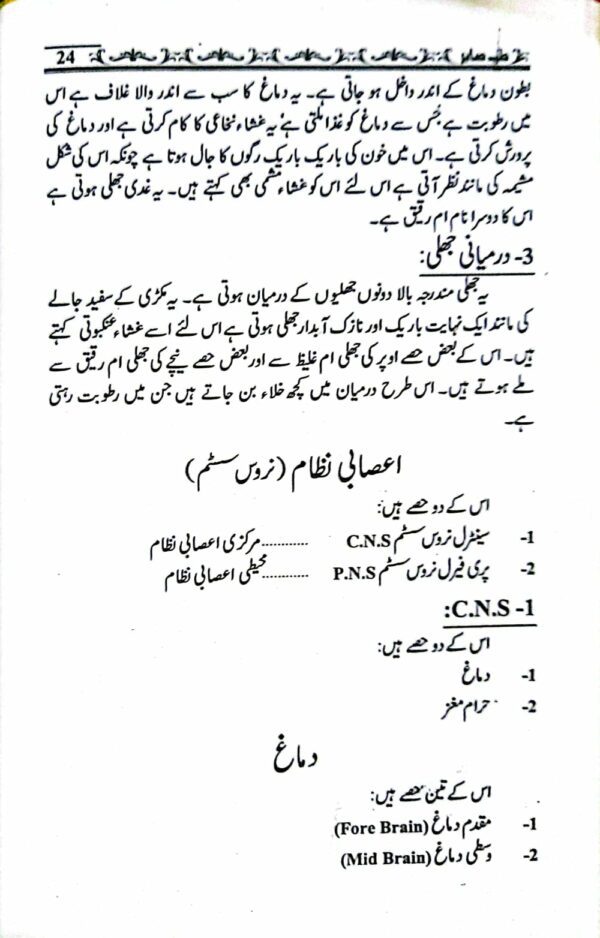 طب صابر 24
بطون دماغ کے اندر داخل ہو جاتی ہے۔ یہ دماغ کا سب سے اندر والا غلاف ہے اس
میں رطوبت ہے جس سے دماغ کو غذا ملتی ہے یہ غشاء نخاعی کا کام کرتی ہے اور دماغ کی
پرورش کرتی ہے۔ اس میں خون کی باریک باریک رگوں کا جال ہوتا ہے چونکہ اس کی شکل
مشیمہ کی مانند نظر آتی ہے اس لئے اس کو غشاء مشمی بھی کہتے ہیں۔ یہ غدی جھلی ہوتی ہے
اس کا دوسرا نام ام رقیق ہے۔
3- درمیانی جھلی:
یہ جھلی مندرجہ بالا دونوں جھلیوں کے درمیان ہوتی ہے۔ یہ مکڑی کے سفید جالے
کی مانند ایک نہایت باریک اور نازک آبدار جھلی ہوتی ہے اس لئے اسے غشاء عنکبوتی کہتے
ہیں۔ اس کے بعض حصے اوپر کی جھلی ام غلیظ سے اور بعض حصے نیچے کی جھلی ام رقیق سے
ملے ہوتے ہیں۔ اس طرح درمیان میں کچھ خلاء بن جاتے ہیں جن میں رطوبت رہتی
ہے۔
اعصابی نظام (نروس سسٹم)
اس کے دو حصے ہیں:
1- سینٹرل نروس سسٹم C.N.S ............ مرکزی اعصابی نظام
2- پری فیرل نروس سسٹم P.N.S ............ محیطی اعصابی نظام
1- C.N.S:
اس کے دو حصے ہیں:
1- دماغ
2- حرام مغز
دماغ
اس کے تین حصے ہیں:
1- مقدم دماغ (Fore Brain)
2- وسطی دماغ (Mid Brain)